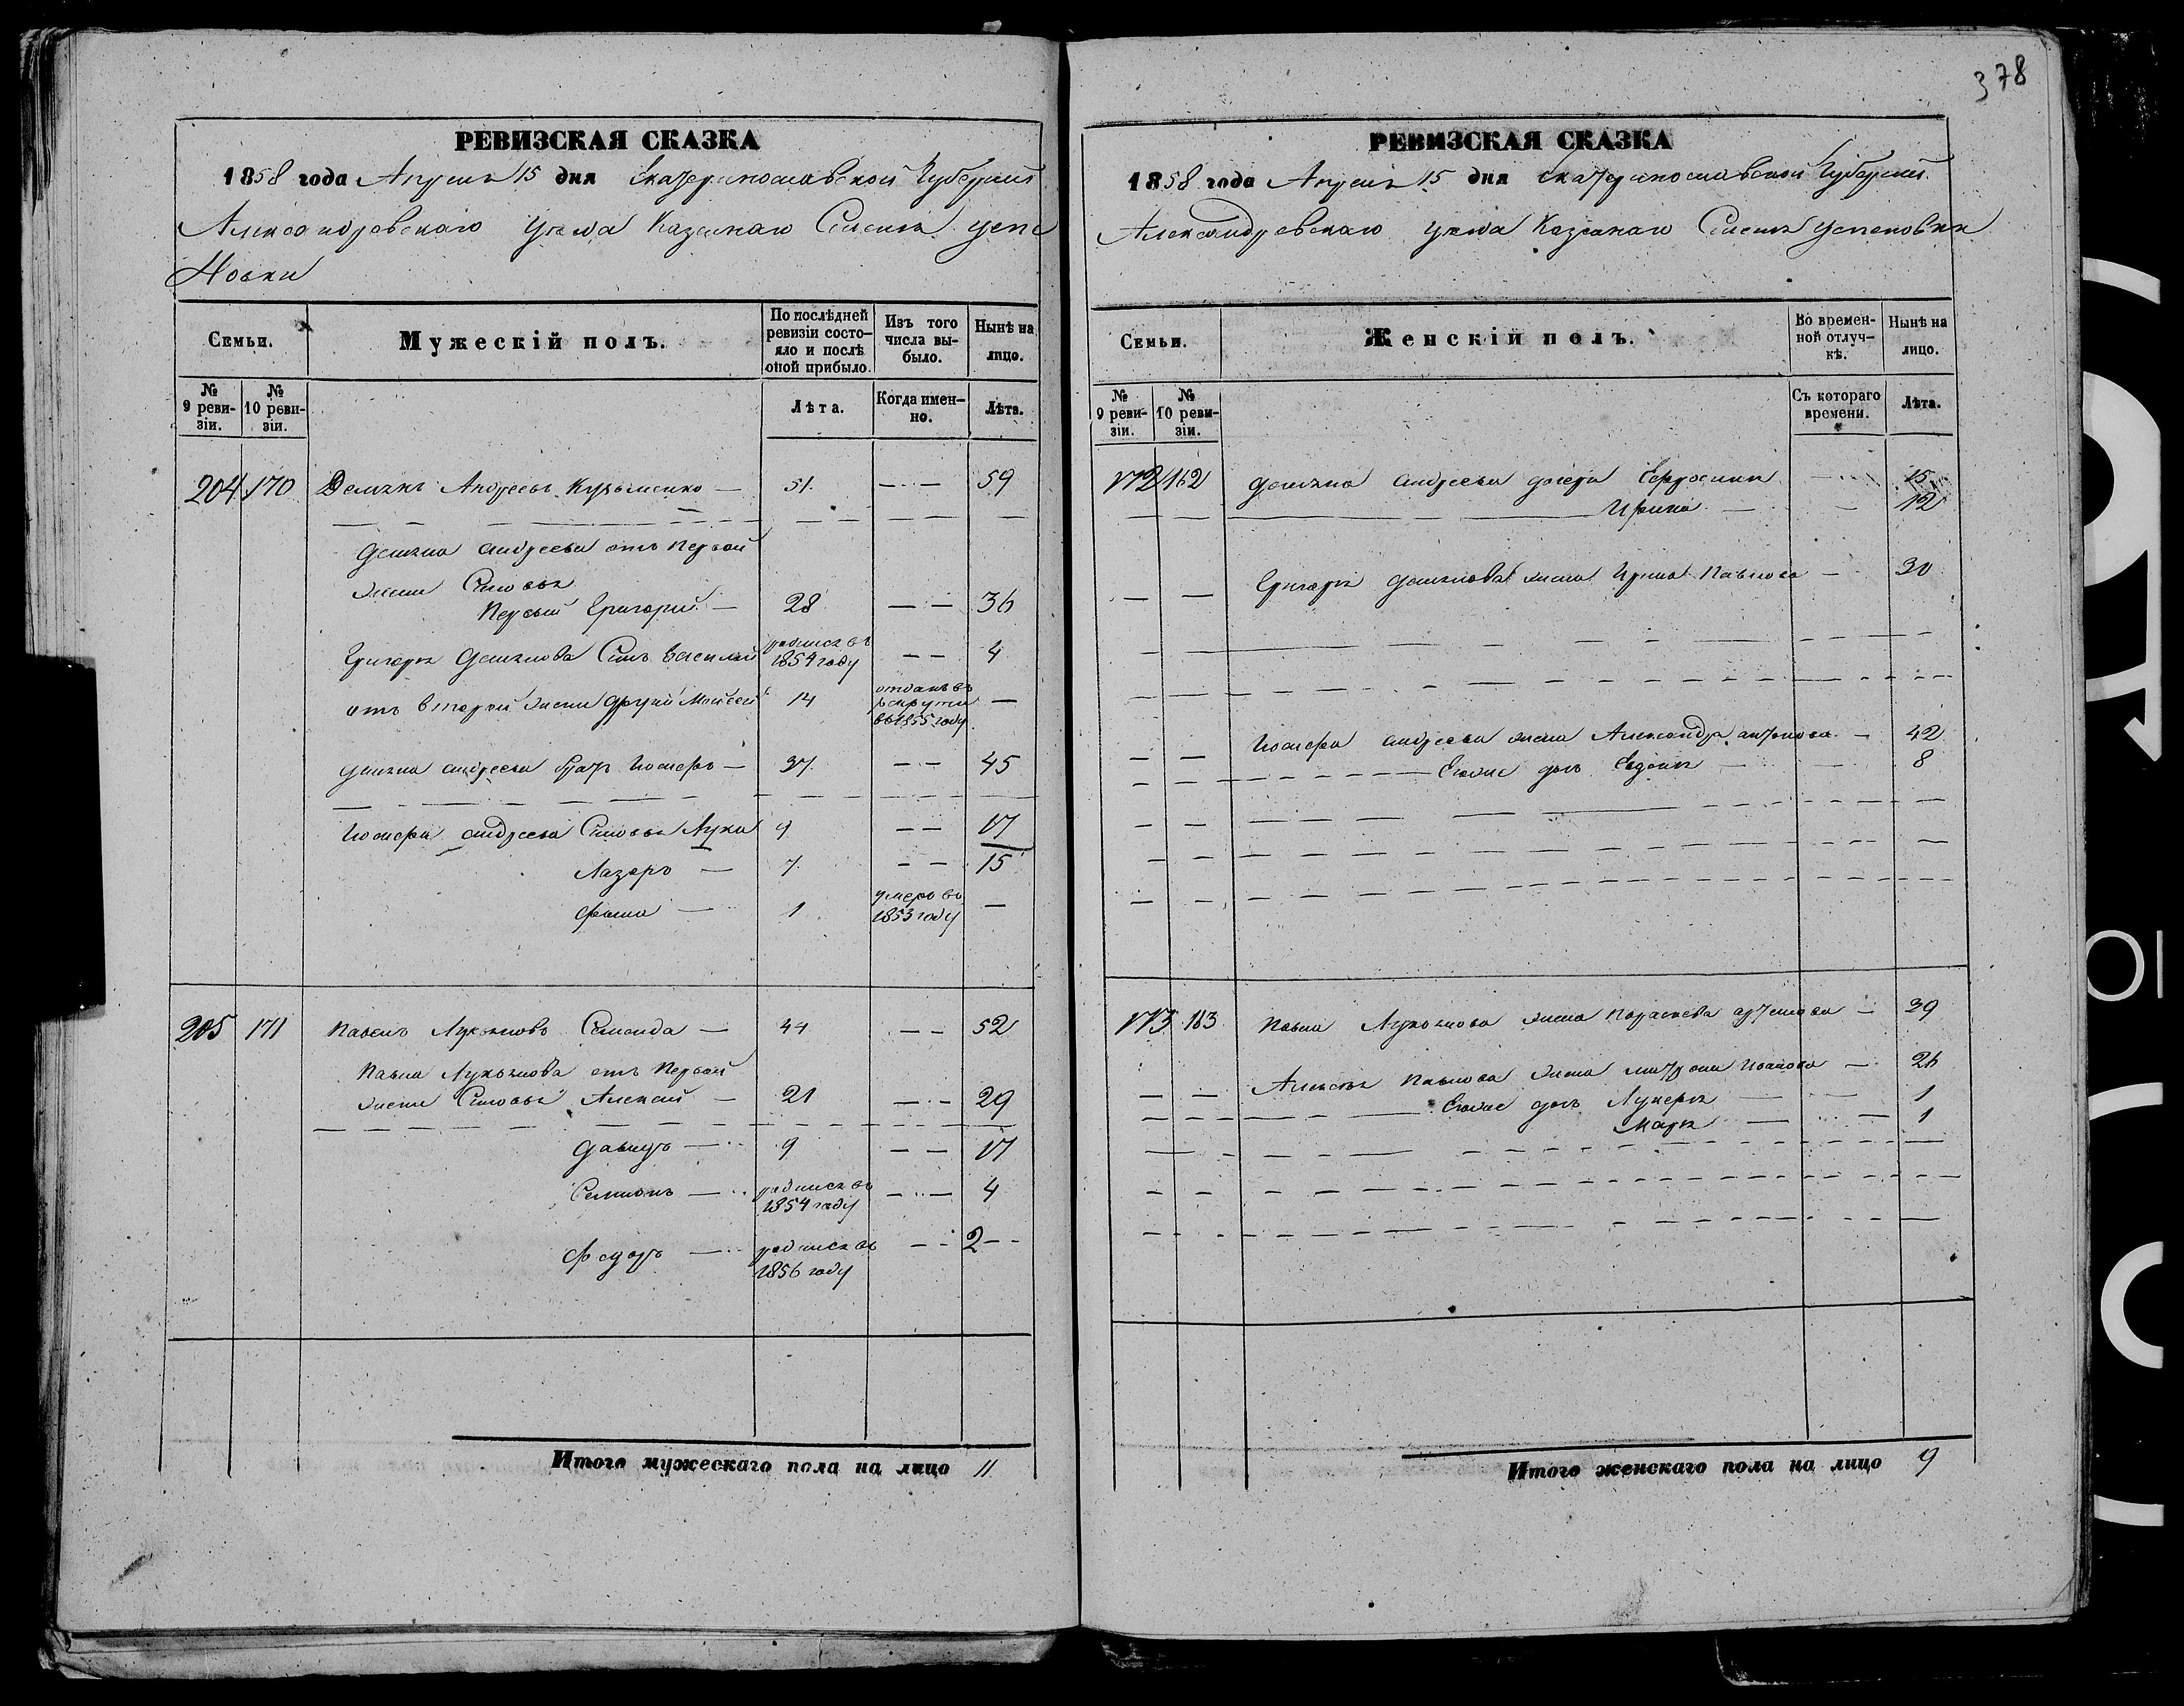 378
РЕВИЗСКАЯ СКАЗКА
1858 года Апреля 15 дня Екатеринославской Губернии
Александровскаго уезда Казеннаго Селения Успе
Новки
Семьи.
Мужескій полъ.
По послѣдней ревизіи состояло и послѣ оной прибыло.
Изъ того числа выбыло.
Нынѣ на лицо.
№ 9 ревизіи.
№ 10 ревизіи.
Лѣта.
Когда именно.
Лѣта.
204 170 Демянъ Андреевъ Кузьменко — 51 — — 59
Демяна Андреева отъ первой
жены Сыновья
Первый Григорий — 28 — — 36
Григорья Демянова Сынъ Василий родился въ 1854 году — — 4
отъ второй жены другий Моисей 14 отданъ въ рекруты въ 1855 году —
Демяна Андреева братъ Иосифъ — 37 — — 45
Иосифа Андреева Сыновья Лука 9 — — 17
Лазарь — 7 — — 15
Фома — 1 умеръ въ 1853 году —
205 171 Павелъ Лукьяновъ — 44 — — 52
Павла Лукьянова отъ Первой
жены Сыновья Алексий — 21 — — 29
Давидъ — 9 — — 17
Семионъ — родился въ 1854 году — — 4
Федоръ — родился въ 1856 году — — 2
Итого мужескаго пола на лицо 11
РЕВИЗСКАЯ СКАЗКА
1858 года Апреля 15 дня Екатеринославской Губернии
Александровскаго уезда Казеннаго Селения Успеновки
Семьи.
Женскій полъ.
Во временной отлучкѣ.
Нынѣ на лицо.
№ 9 ревизіи.
№ 10 ревизіи.
Съ котораго времени.
Лѣта.
172 162 Демяна Андреева дочери Ефросиния — 15
Ирина — 12
— — Григорья Демянова жена Ирина Павлова — 30
— — Иосифа Андреева жена Александра Антонова — 42
Еюже дочь Евдокия — 8
173 163 Павла Лукьянова жена Параскева Артемова — 39
— — Алексея Павлова жена Митрона Иванова — 26
Еюже дочь Лукерья — 1
Марья — 1
Итого женскаго пола на лицо 9